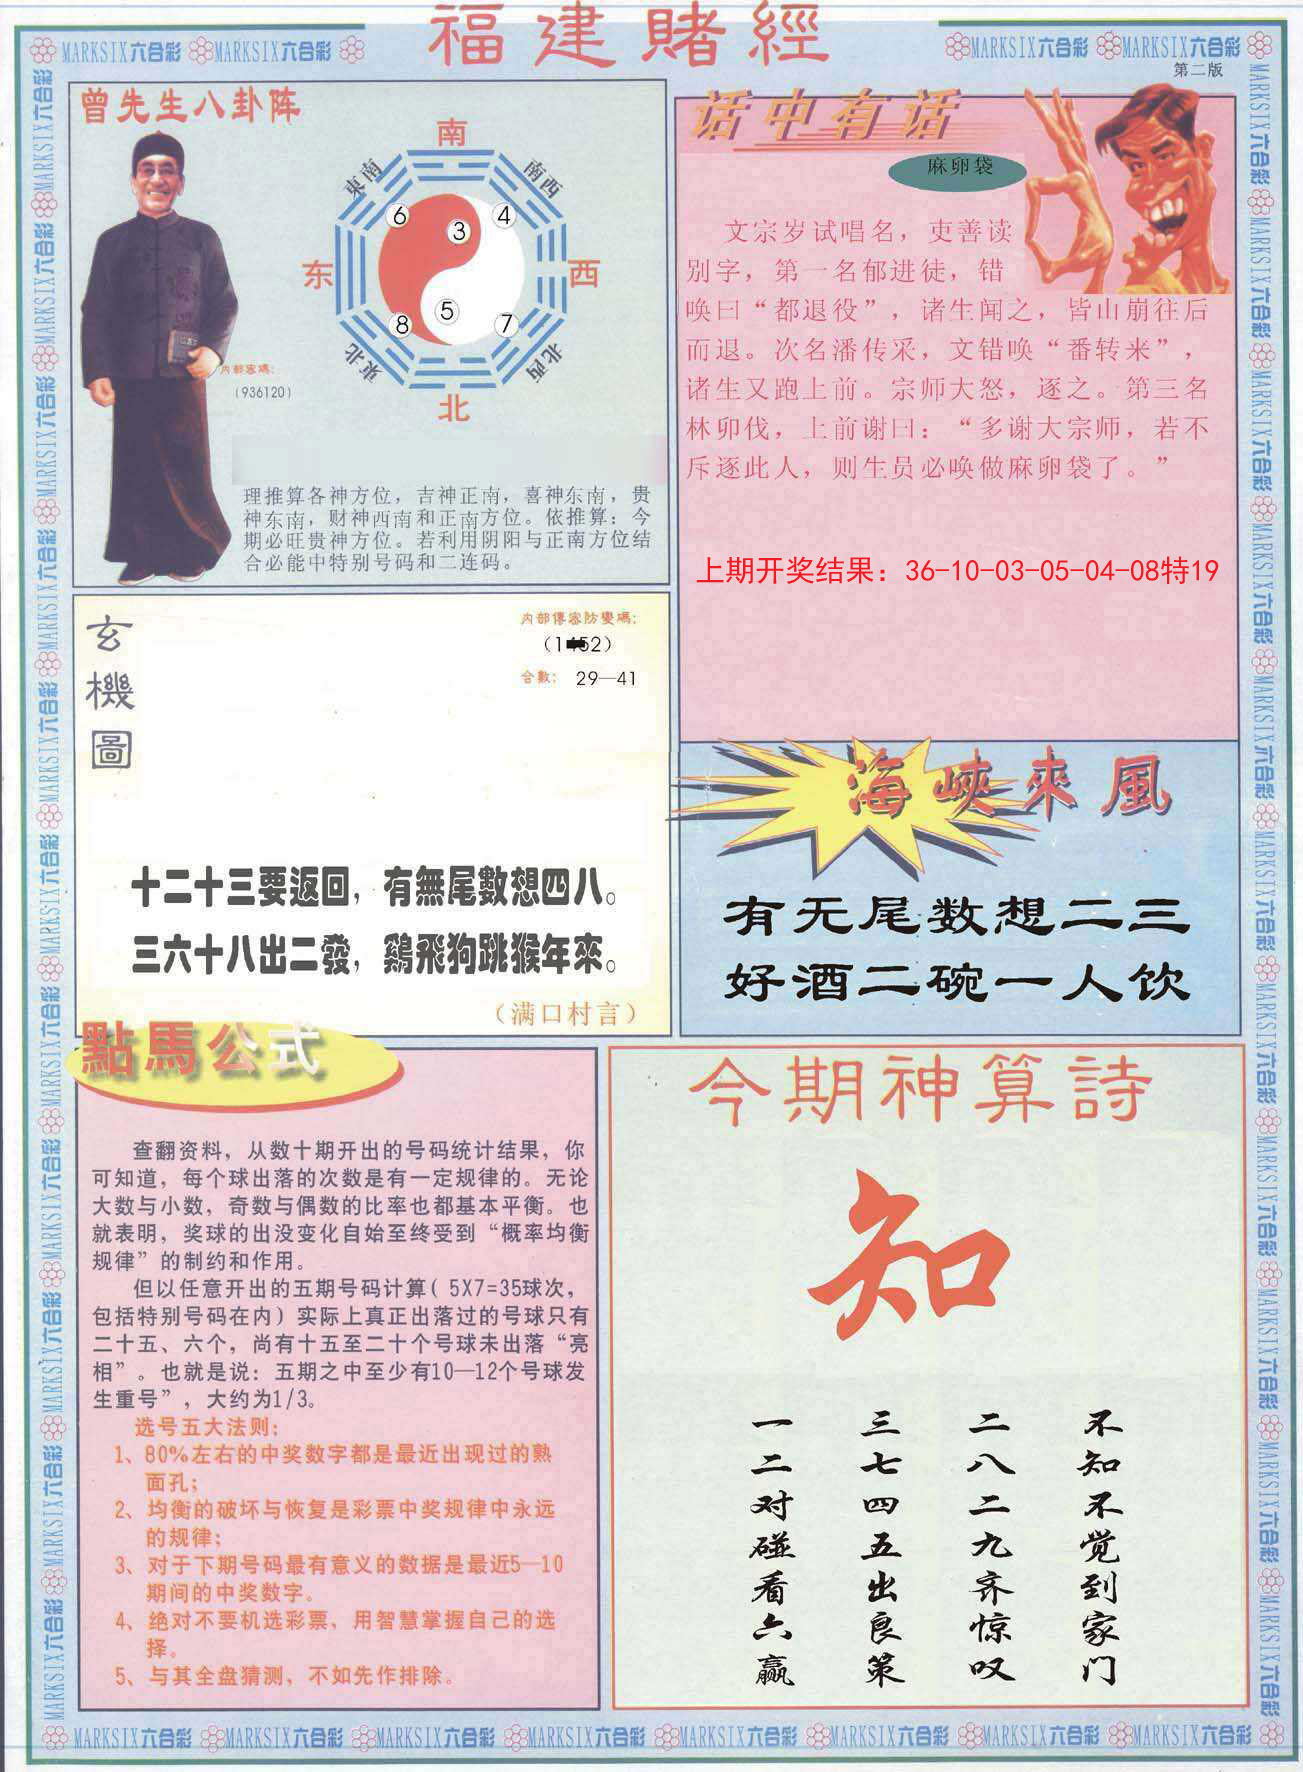 福建賭經
MARKSIX六合彩 MARKSIX六合彩
MARKSIX六合彩 MARKSIX六合彩
第二版
曾先生八卦阵
南
東南
南西
6
3
4
东
西
5
8
7
東北
北西
北
内部密碼：
（936120）
理推算各神方位，吉神正南，喜神东南，贵
神东南，财神西南和正南方位。依推算：今
期必旺贵神方位。若利用阴阳与正南方位结
合必能中特别号码和二连码。
话中有话
麻卵袋
文宗岁试唱名，吏善读
别字，第一名郁进徒，错
唤曰“都退役”，诸生闻之，皆山崩往后
而退。次名潘传采，文错唤“番转来”，
诸生又跑上前。宗师大怒，逐之。第三名
林卯伐，上前谢曰：“多谢大宗师，若不
斥逐此人，则生员必唤做麻卵袋了。”
上期开奖结果：36-10-03-05-04-08特19
玄機圖
内部傳密防變碼：
合數：29—41
十二十三要返回，有無尾數想四八。
三六十八出二發，鷄飛狗跳猴年來。
（满口村言）
海峽來風
有无尾数想二三
好酒二碗一人饮
點馬公式
查翻资料，从数十期开出的号码统计结果，你
可知道，每个球出落的次数是有一定规律的。无论
大数与小数，奇数与偶数的比率也都基本平衡。也
就表明，奖球的出没变化自始至终受到“概率均衡
规律”的制约和作用。
但以任意开出的五期号码计算（5X7=35球次，
包括特别号码在内）实际上真正出落过的号球只有
二十五、六个，尚有十五至二十个号球未出落“亮
相”。也就是说：五期之中至少有10—12个号球发
生重号”，大约为1/3。
选号五大法则：
1、80%左右的中奖数字都是最近出现过的熟
面孔；
2、均衡的破坏与恢复是彩票中奖规律中永远
的规律；
3、对于下期号码最有意义的数据是最近5—10
期间的中奖数字。
4、绝对不要机选彩票，用智慧掌握自己的选
择。
5、与其全盘猜测，不如先作排除。
今期神算詩
知
不知不觉到家门
二八二九齐惊叹
三七四五出良策
一二对碰看六赢
MARKSIX六合彩 MARKSIX六合彩 MARKSIX六合彩 MARKSIX六合彩 MARKSIX六合彩 MARKSIX六合彩 MARKSIX六合彩 MARKSIX六合彩